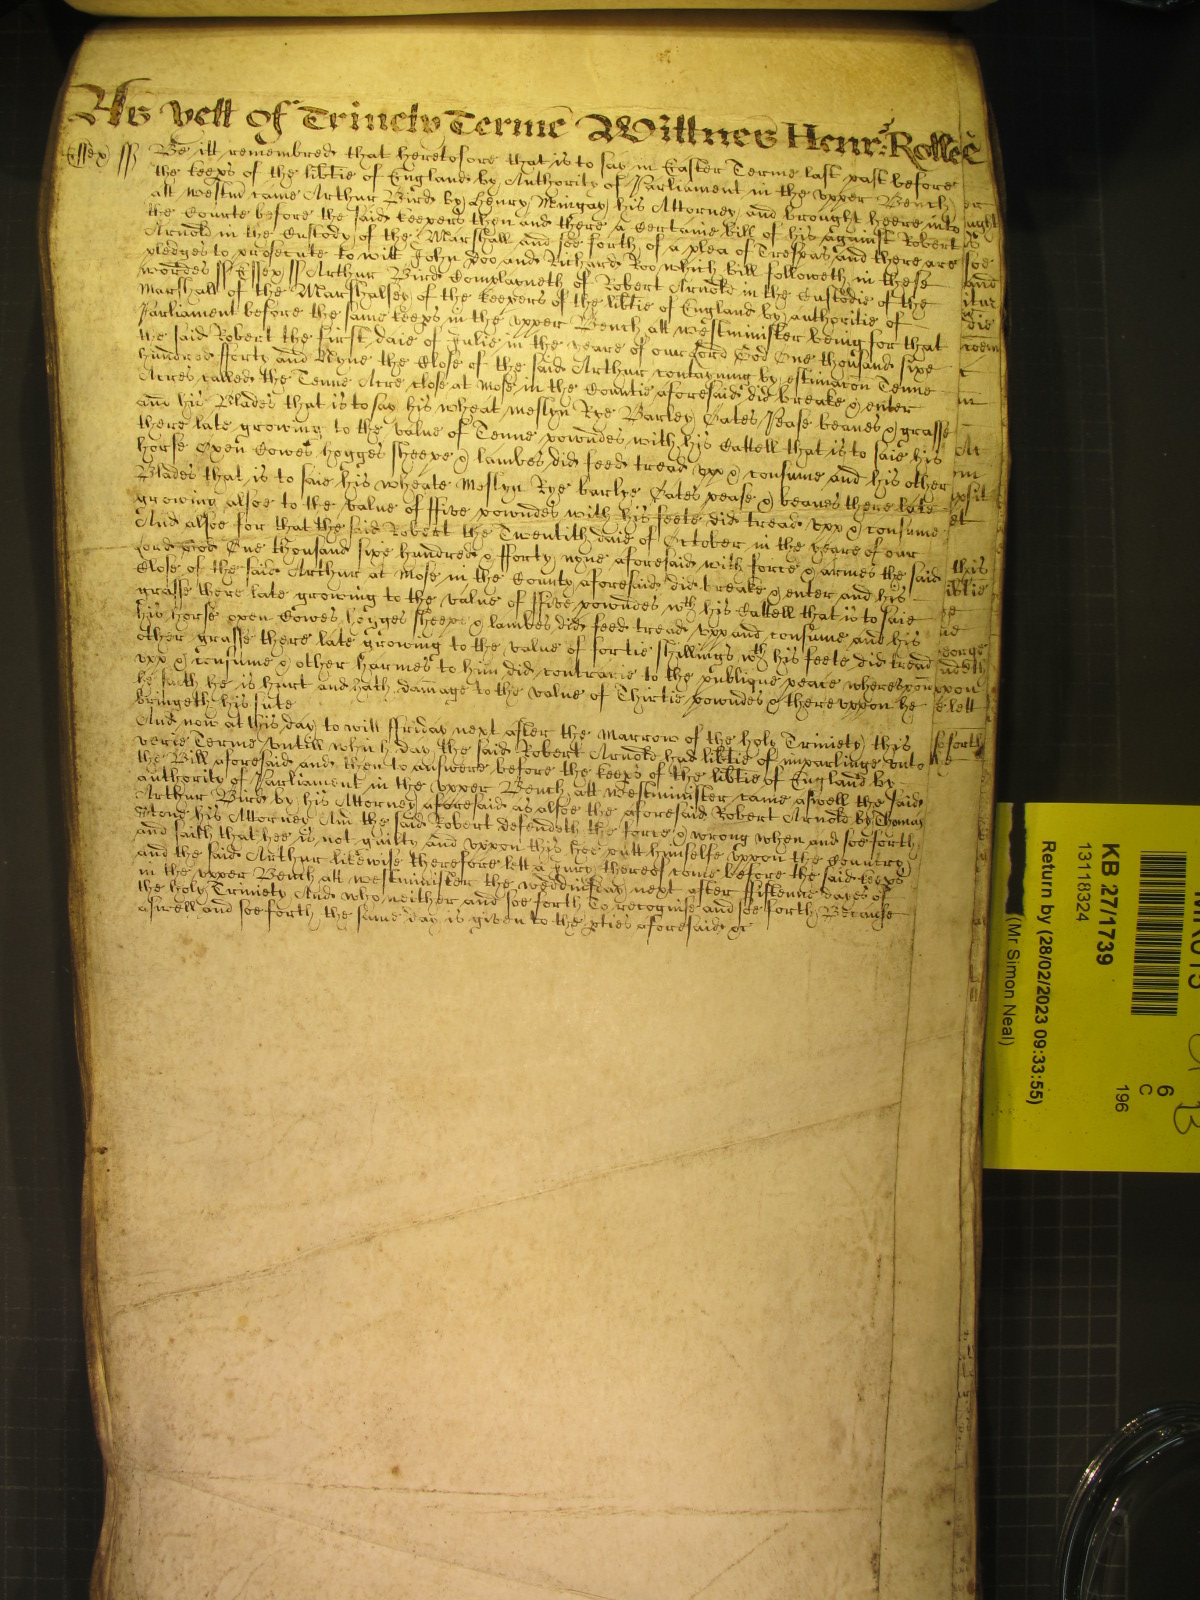 As yett of Trinety Terme Wittnes Henr: Rolle
Essex ss Be itt remembred that heretofore that is to say in Easter Terme last past before
the keeps of the libtie of England by Authority of Parliament in the vpper Bench
att Westm came Arthur Bird by Henry Mingay his Attorney and brought heere into
the Courte before the said keepers then and there a Certaine bill of his against Robert
Arnold in the Custody of the Marshall and soe forth of a plea of Trespas and there are
pledges to prosecute to witt John Doo and Richard Roo which bill followeth in these
wordes ss Essex ss Arthur Bird Complayneth of Robert Arnold in the Custodie of the
Marshall of the Marshalsey of the keepers of the libtie of England by authoritie of
Parliament before the same keeps in the vpper Bench att Westminister being for that
he said Robert the first daie of Julie in the yeare of our Lord God One thousand sixe
hundred fforty and Nyne the Close of the said Arthur contayning by estimacon Tenne
Acres called the Tenne Acre close at Mose in the Countie aforesaid did breake & enter
and his Blades that is to say his wheat meslyn Rye Barley Oates Pease beanes & grasse
there late growing to the value of Tenne powndes with his Cattell that is to saie his
horse Oxen Cowes hogges sheepe & lambes did feed tread vpp & consume and his other
Blades that is to saie his wheate Meslyn Rye barlye Oates pease & beanes there late
growing alsoe to the value of ffive powndes with his feete did tread vpp & consume
And alsoe for that the said Robert the Twentith daie of October in the yeare of our
Lord god One thousand sixe hundred & fforty nyne aforesaid with force & armes the said
Close of the said Arthur at Mose in the County aforesaid did breake & enter and his
grasse there late growing to the value of ffive powndes wth his Cattell that is to saie
his horse oxen Cowes hogges sheepe & lambes did feed tread vpp and consume and his
other grasse there late growing to the value of fortie shillings wth his feete did tread
vpp & consume & other harmes to him did contrarie to the publique peace wherevpon
he saith he is hurt and hath damage to the value of Thirtie powndes & therevppon he
bringeth his sute
And now at this day to witt ffriday next after the Marrow of the holy Triniety this
verie Terme vntill which day the said Robert Arnold had libtie of imparlinge vnto
the Bill aforesaid and then to answere before the keeps of the libtie of England by
authority of Parliament in the vpper Bench att Westminister came aswell the said
Arthur Bird by his Attorney aforesaid as alsoe the aforesaid Robert Arnold by Thomas
Stone his Attorney And the said Robert defendeth the force & wrong when and soe forth
and saith that hee is not guilty and vppon this hee putt himselfe vppon the Country
and the said Arthur likewise therefore lett a Jury thereof come before the said keeps
in the vpper Bench att Westminister the wednusday next after ffifteene dayes of
the holy Triniety And who neither and soe forth To recognise and soe forth Because
aswell and soe forth the same day is given to the pties aforesaid &c
KB 27/1739
13118324
Return by (28/02/2023 09:33:55)
(Mr Simon Neal)
6
C
196